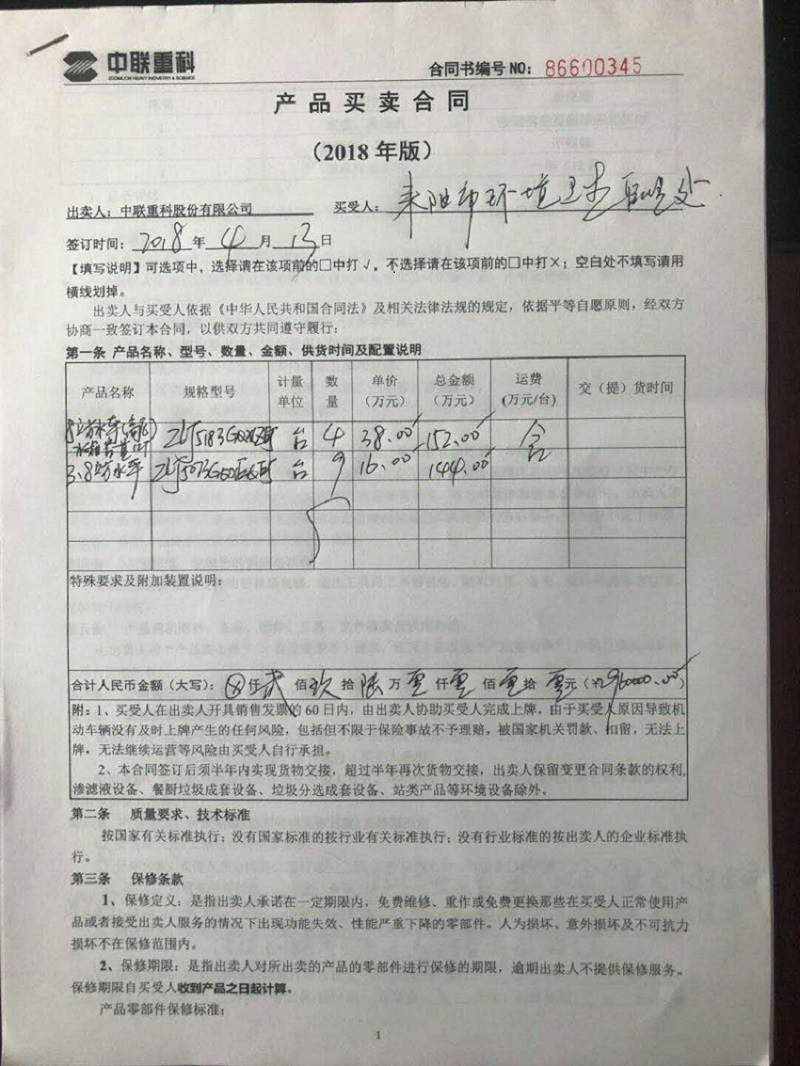 中联重科
ZOOMLION HEAVY INDUSTRY & SCIENCE
合同书编号 NO: 86600345
产品买卖合同
(2018 年版)
出卖人:中联重科股份有限公司 买受人:耒阳市环境卫生管理处
签订时间:2018 年 4 月 13 日
【填写说明】可选项中,选择请在该项前的□中打√,不选择请在该项前的□中打×;空白处不填写请用
横线划掉。
出卖人与买受人依据《中华人民共和国合同法》及相关法律法规的规定,依据平等自愿原则,经双方
协商一致签订本合同,以供双方共同遵守履行:
第一条 产品名称、型号、数量、金额、供货时间及配置说明
产品名称 规格型号 计量单位 数量 单价(万元) 总金额(万元) 运费(万元/台) 交(提)货时间
台 4 38.00 152.00 含
台 9 16.00 144.00
特殊要求及附加装置说明:
合计人民币金额(大写):⊗仟贰佰玖拾陆万零仟零佰零拾零元(¥2960000.00)
附:1、买受人在出卖人开具销售发票的 60 日内,由出卖人协助买受人完成上牌,由于买受人原因导致机
动车辆没有及时上牌产生的任何风险,包括但不限于保险事故不予理赔,被国家机关罚款、扣留,无法上
牌,无法继续运营等风险由买受人自行承担。
2、本合同签订后须半年内实现货物交接,超过半年再次货物交接,出卖人保留变更合同条款的权利,
渗滤液设备、餐厨垃圾成套设备、垃圾分选成套设备、站类产品等环境设备除外。
第二条 质量要求、技术标准
按国家有关标准执行;没有国家标准的按行业有关标准执行;没有行业标准的按出卖人的企业标准执
行。
第三条 保修条款
1、保修定义:是指出卖人承诺在一定期限内,免费维修、重作或免费更换那些在买受人正常使用产
品或者接受出卖人服务的情况下出现功能失效、性能严重下降的零部件。人为损坏、意外损坏及不可抗力
损坏不在保修范围内。
2、保修期限:是指出卖人对所出卖的产品的零部件进行保修的期限,逾期出卖人不提供保修服务。
保修期限自买受人收到产品之日起计算。
产品零部件保修标准:
1